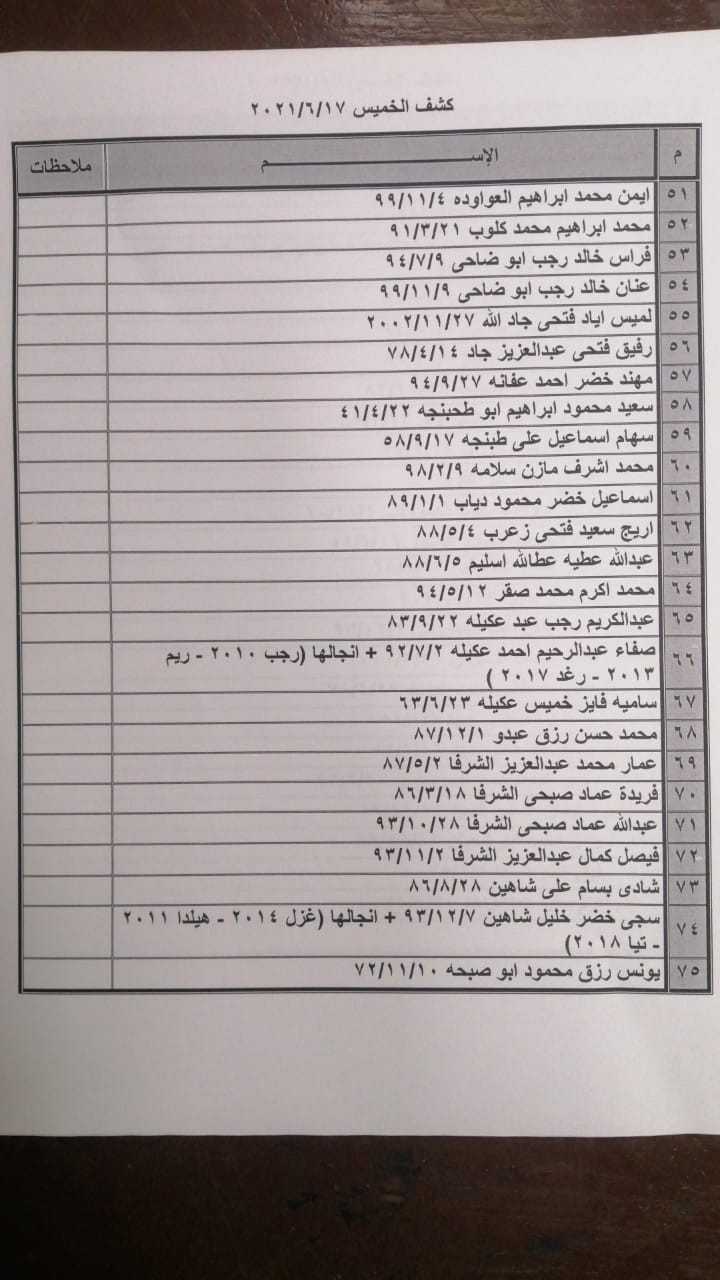 كشف الخميس ٢٠٢١/٦/١٧
م الإســـــــــــــــــــم ملاحظات
٥١ ايمن محمد ابراهيم العواوده ٩٩/١١/٤
٥٢ محمد ابراهيم محمد كلوب ٩١/٣/٢١
٥٣ فراس خالد رجب ابو ضاحى ٩٤/٧/٩
٥٤ عنان خالد رجب ابو ضاحى ٩٩/١١/٩
٥٥ لميس اياد فتحى جاد الله ٢٠٠٢/١١/٢٧
٥٦ رفيق فتحى عبدالعزيز جاد ٧٨/٤/١٤
٥٧ مهند خضر احمد عفانه ٩٤/٩/٢٧
٥٨ سعيد محمود ابراهيم ابو طحبنجه ٤١/٤/٢٢
٥٩ سهام اسماعيل على طبنجه ٥٨/٩/١٧
٦٠ محمد اشرف مازن سلامه ٩٨/٢/٩
٦١ اسماعيل خضر محمود دياب ٨٩/١/١
٦٢ اريج سعيد فتحى زعرب ٨٨/٥/٤
٦٣ عبدالله عطيه عطالله اسليم ٨٨/٦/٥
٦٤ محمد اكرم محمد صقر ٩٤/٥/١٢
٦٥ عبدالكريم رجب عبد عكيله ٨٣/٩/٢٢
٦٦ صفاء عبدالرحيم احمد عكيله ٩٢/٧/٢ + انجالها (رجب ٢٠١٠ - ريم
٢٠١٣ - رغد ٢٠١٧ )
٦٧ ساميه فايز خميس عكيله ٦٣/٦/٢٣
٦٨ محمد حسن رزق عبدو ٨٧/١٢/١
٦٩ عمار محمد عبدالعزيز الشرفا ٨٧/٥/٢
٧٠ فريدة عماد صبحى الشرفا ٨٦/٣/١٨
٧١ عبدالله عماد صبحى الشرفا ٩٣/١٠/٢٨
٧٢ فيصل كمال عبدالعزيز الشرفا ٩٣/١١/٢
٧٣ شادى بسام على شاهين ٨٦/٨/٢٨
٧٤ سجى خضر خليل شاهين ٩٣/١٢/٧ + انجالها (غزل ٢٠١٤ - هيلدا ٢٠١١
- تيا ٢٠١٨)
٧٥ يونس رزق محمود ابو صبحه ٧٢/١١/١٠